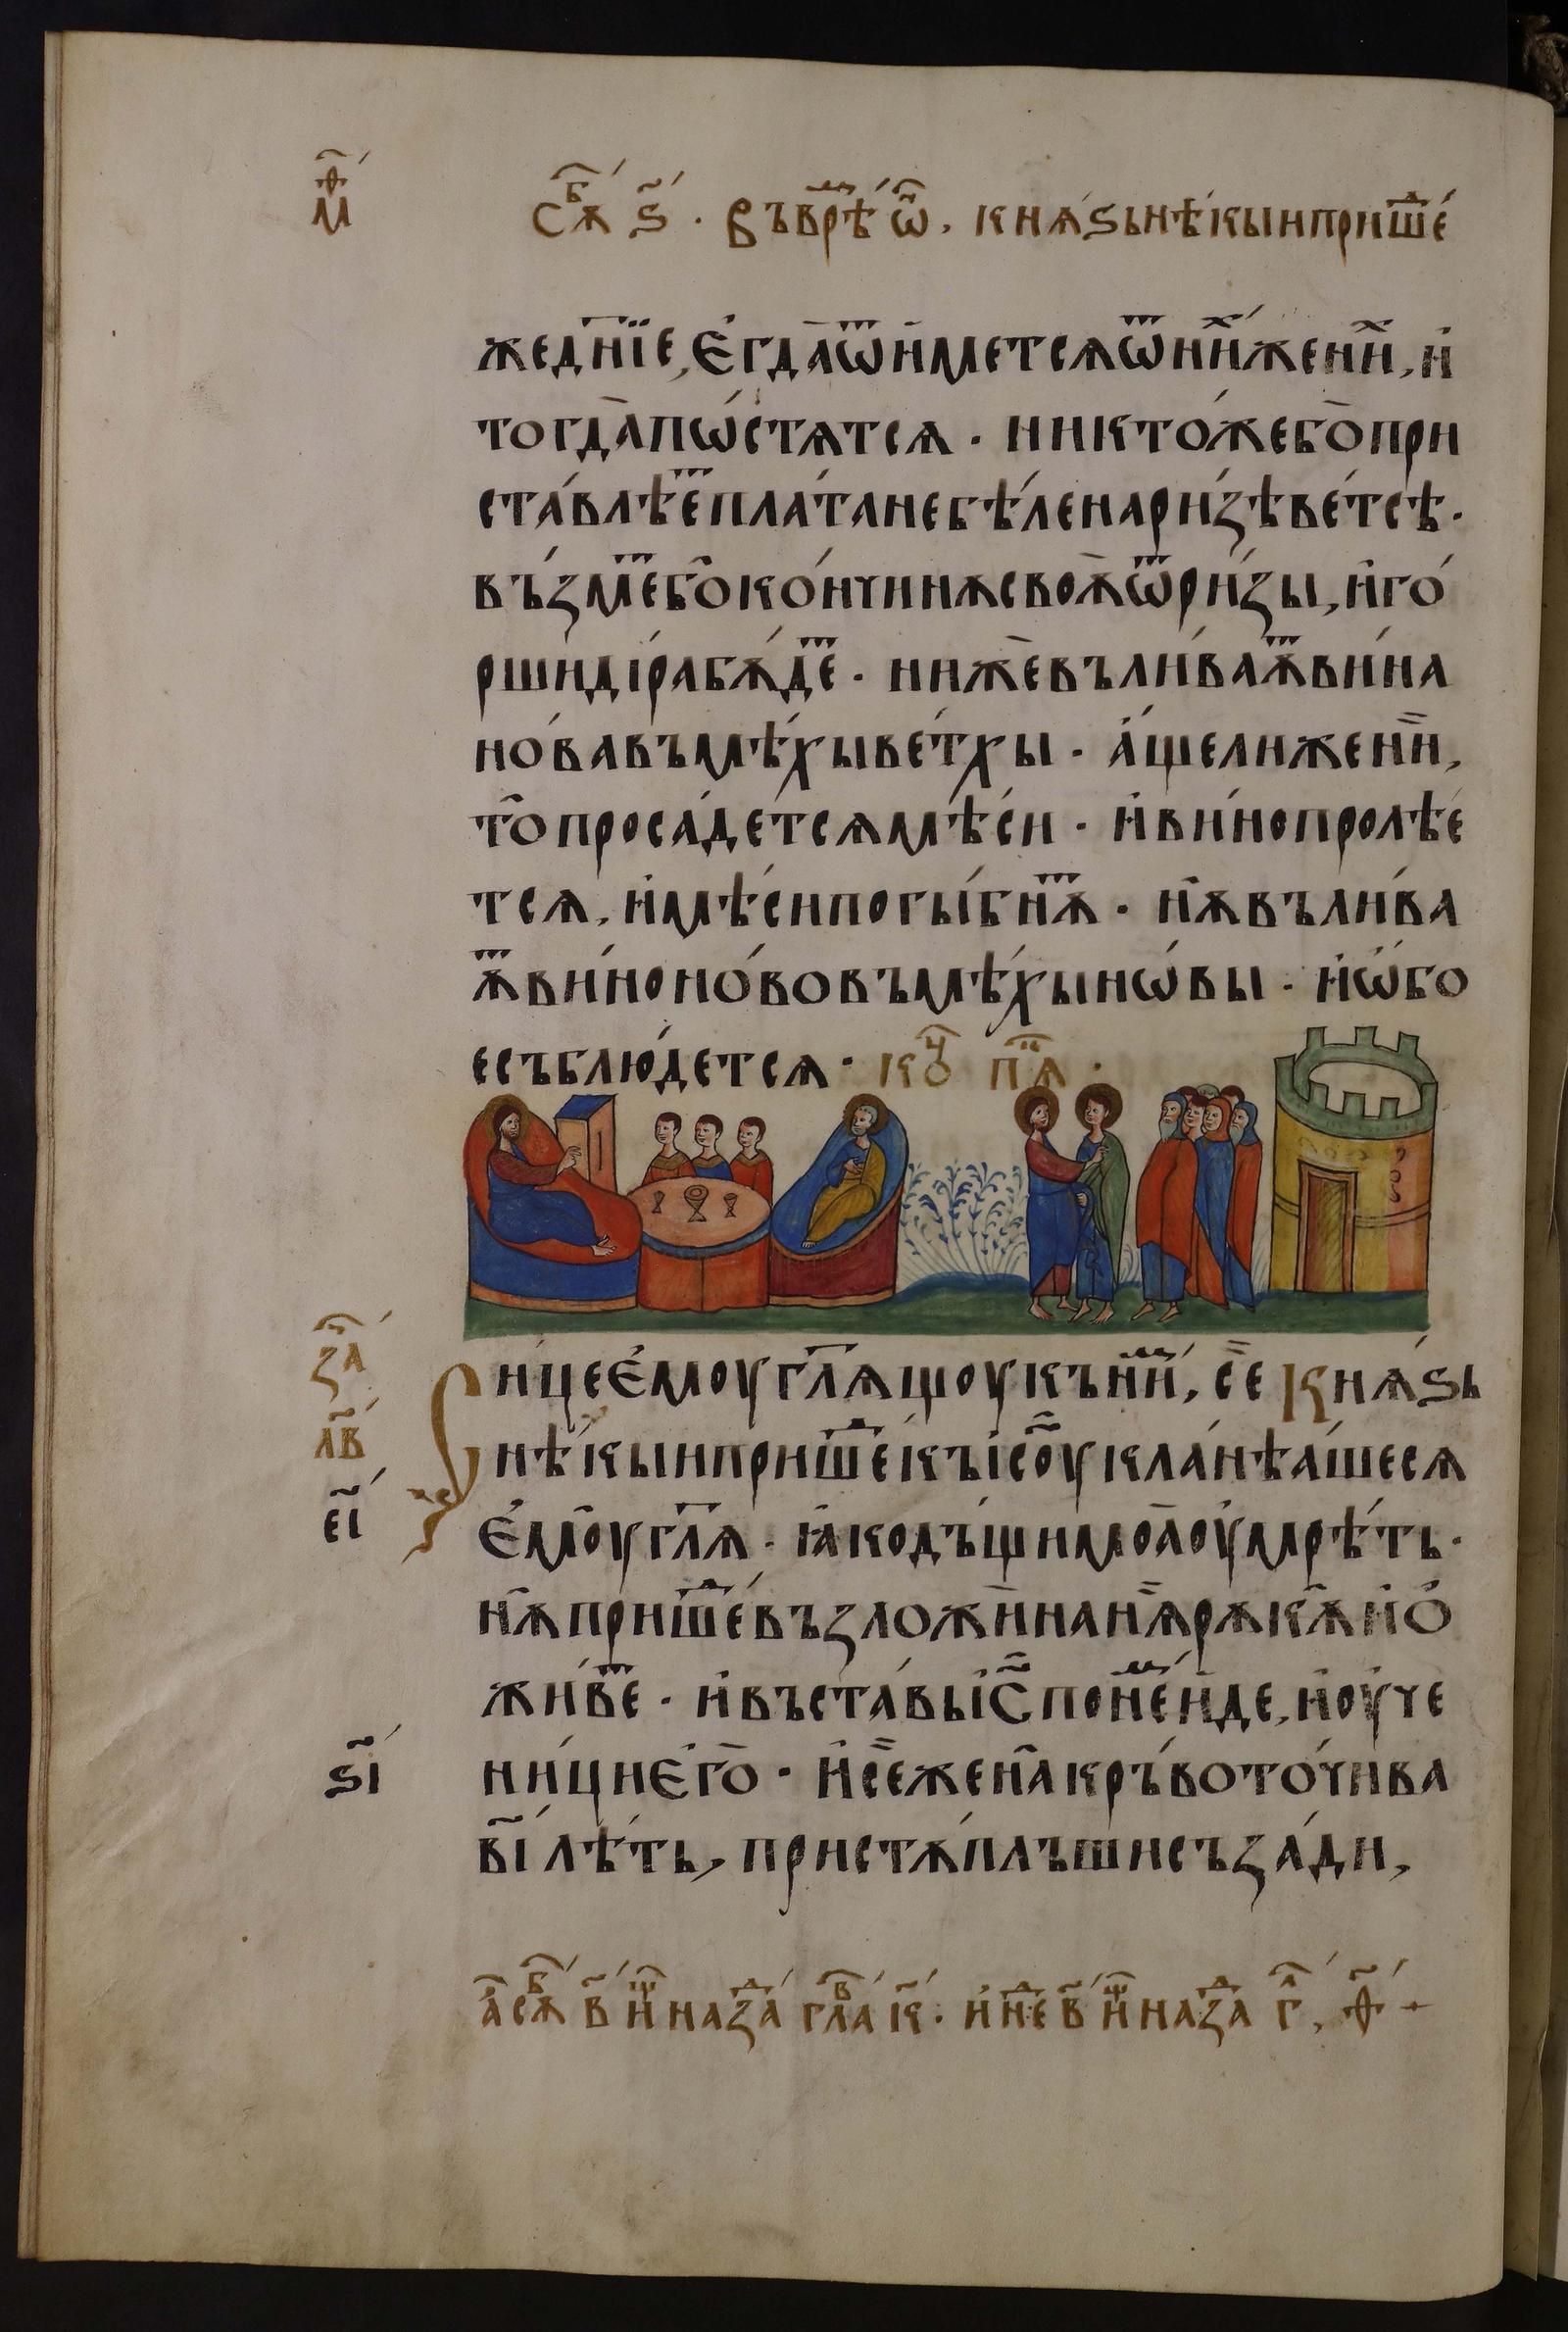 м҃ф
сѫ҃б ѕ҃ · Въ врѣ҃ ѡ҃н, кнѧ́ѕь нѣ́кыи прише́д
же днїе, Є҆гда̀ ѿи́метсѧ ѿ ни́х жени́х, и҆
тогда̀ пѡ́стѧтсѧ · никто́жебо̀ при
ста́влѣет пла́та небѣ́лена ри́зѣ ве́тсѣ ·
въ́змет бо̂ ко́нчинѫ своѫ̀ ѿ ри́зы, и҆ го́
рши ді́ра бѫ́дет · нижѐ въли́ваѫт ви́на
но́ва въ мѣ́хы ве́тхы · а҆́ще ли же ни̏,
то̂ проса́детсѧ мѣ́си · и҆ ви́но пролѣе́
тсѧ, и҆ мѣ́си погы́бнѫт · нѫ̂ въли́ва
ѫт ви́но но́во въ мѣ́хы нѡ́вы · и҆ ѡ҆́бо
е съблю́детсѧ · коц҃ пѧт҃ ·
за҃ч
л҃в
е҃і
Си́це є҆моу гл҃ѧщоу къ ни́м, се̏ Кнѧ́ѕь
нѣ́кыи прише́д къ і҆со҃у кла́нѣашесѧ
Є҆моу̂ гл҃ѧ · ꙗ҆́ко дъ́щи моа̀ оу҆мрѣ́ть ·
нѫ̂ прише́д възложѝ на нѫ̏ рѫкѫ̂ и҆ о҆
жи́вет · и҆ въста́вь і҆с҃ по не́м и҆́де, и҆ оу҆че
ѕ҃і
ни́ци є҆го̀ · и҆ се̏ жена̂ кръ́воточива
в҃і лѣ́ть, пристѫ́пльши съза́ди,